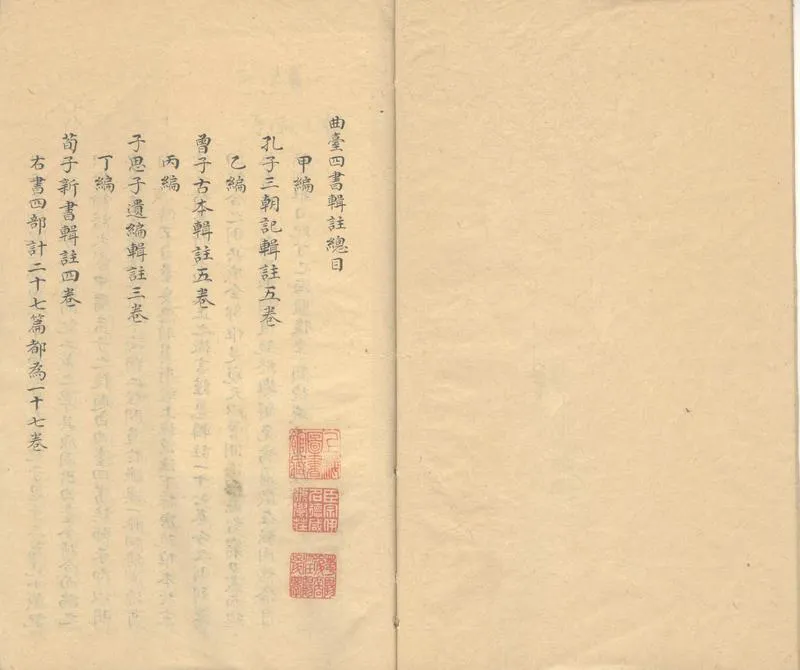 曲臺四書輯註總目
甲編
孔子三朝記輯註五卷
乙編
曾子古本輯註五卷
丙編
子思子遺編輯註三卷
丁編
荀子新書輯註四卷
右書四部計二十七篇都為一十七卷